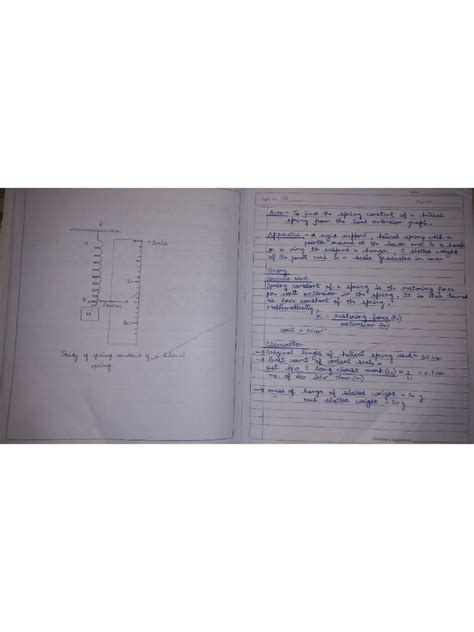 Scale
Pointer
W
Study of spring constant of a helical
spring
Date
Expt. No. 5
Page No.
Aim - To find the spring constant of a helical
spring from the load extension graph.
Apparatus - A rigid support, helical spring with a
pointer around at the lower end is a hook
or a ring to suspend a hanger, slotted weight
of the and is a scale graduated in mm
Theory
Formula Used
Spring constant of a spring is the restoring force
per unit extension in the spring. It is also termed
as force constant of the spring.
Mathematically,
K = restoring force (N)
extension (m)
Unit = N/m
Observation
→ Original length of helical spring used =
→ Least count of vertical scale
mark
no. of div
→ mass of hanger of slotted weight = 50 g
" " each slotted weight = 50 g
Teacher's Signature